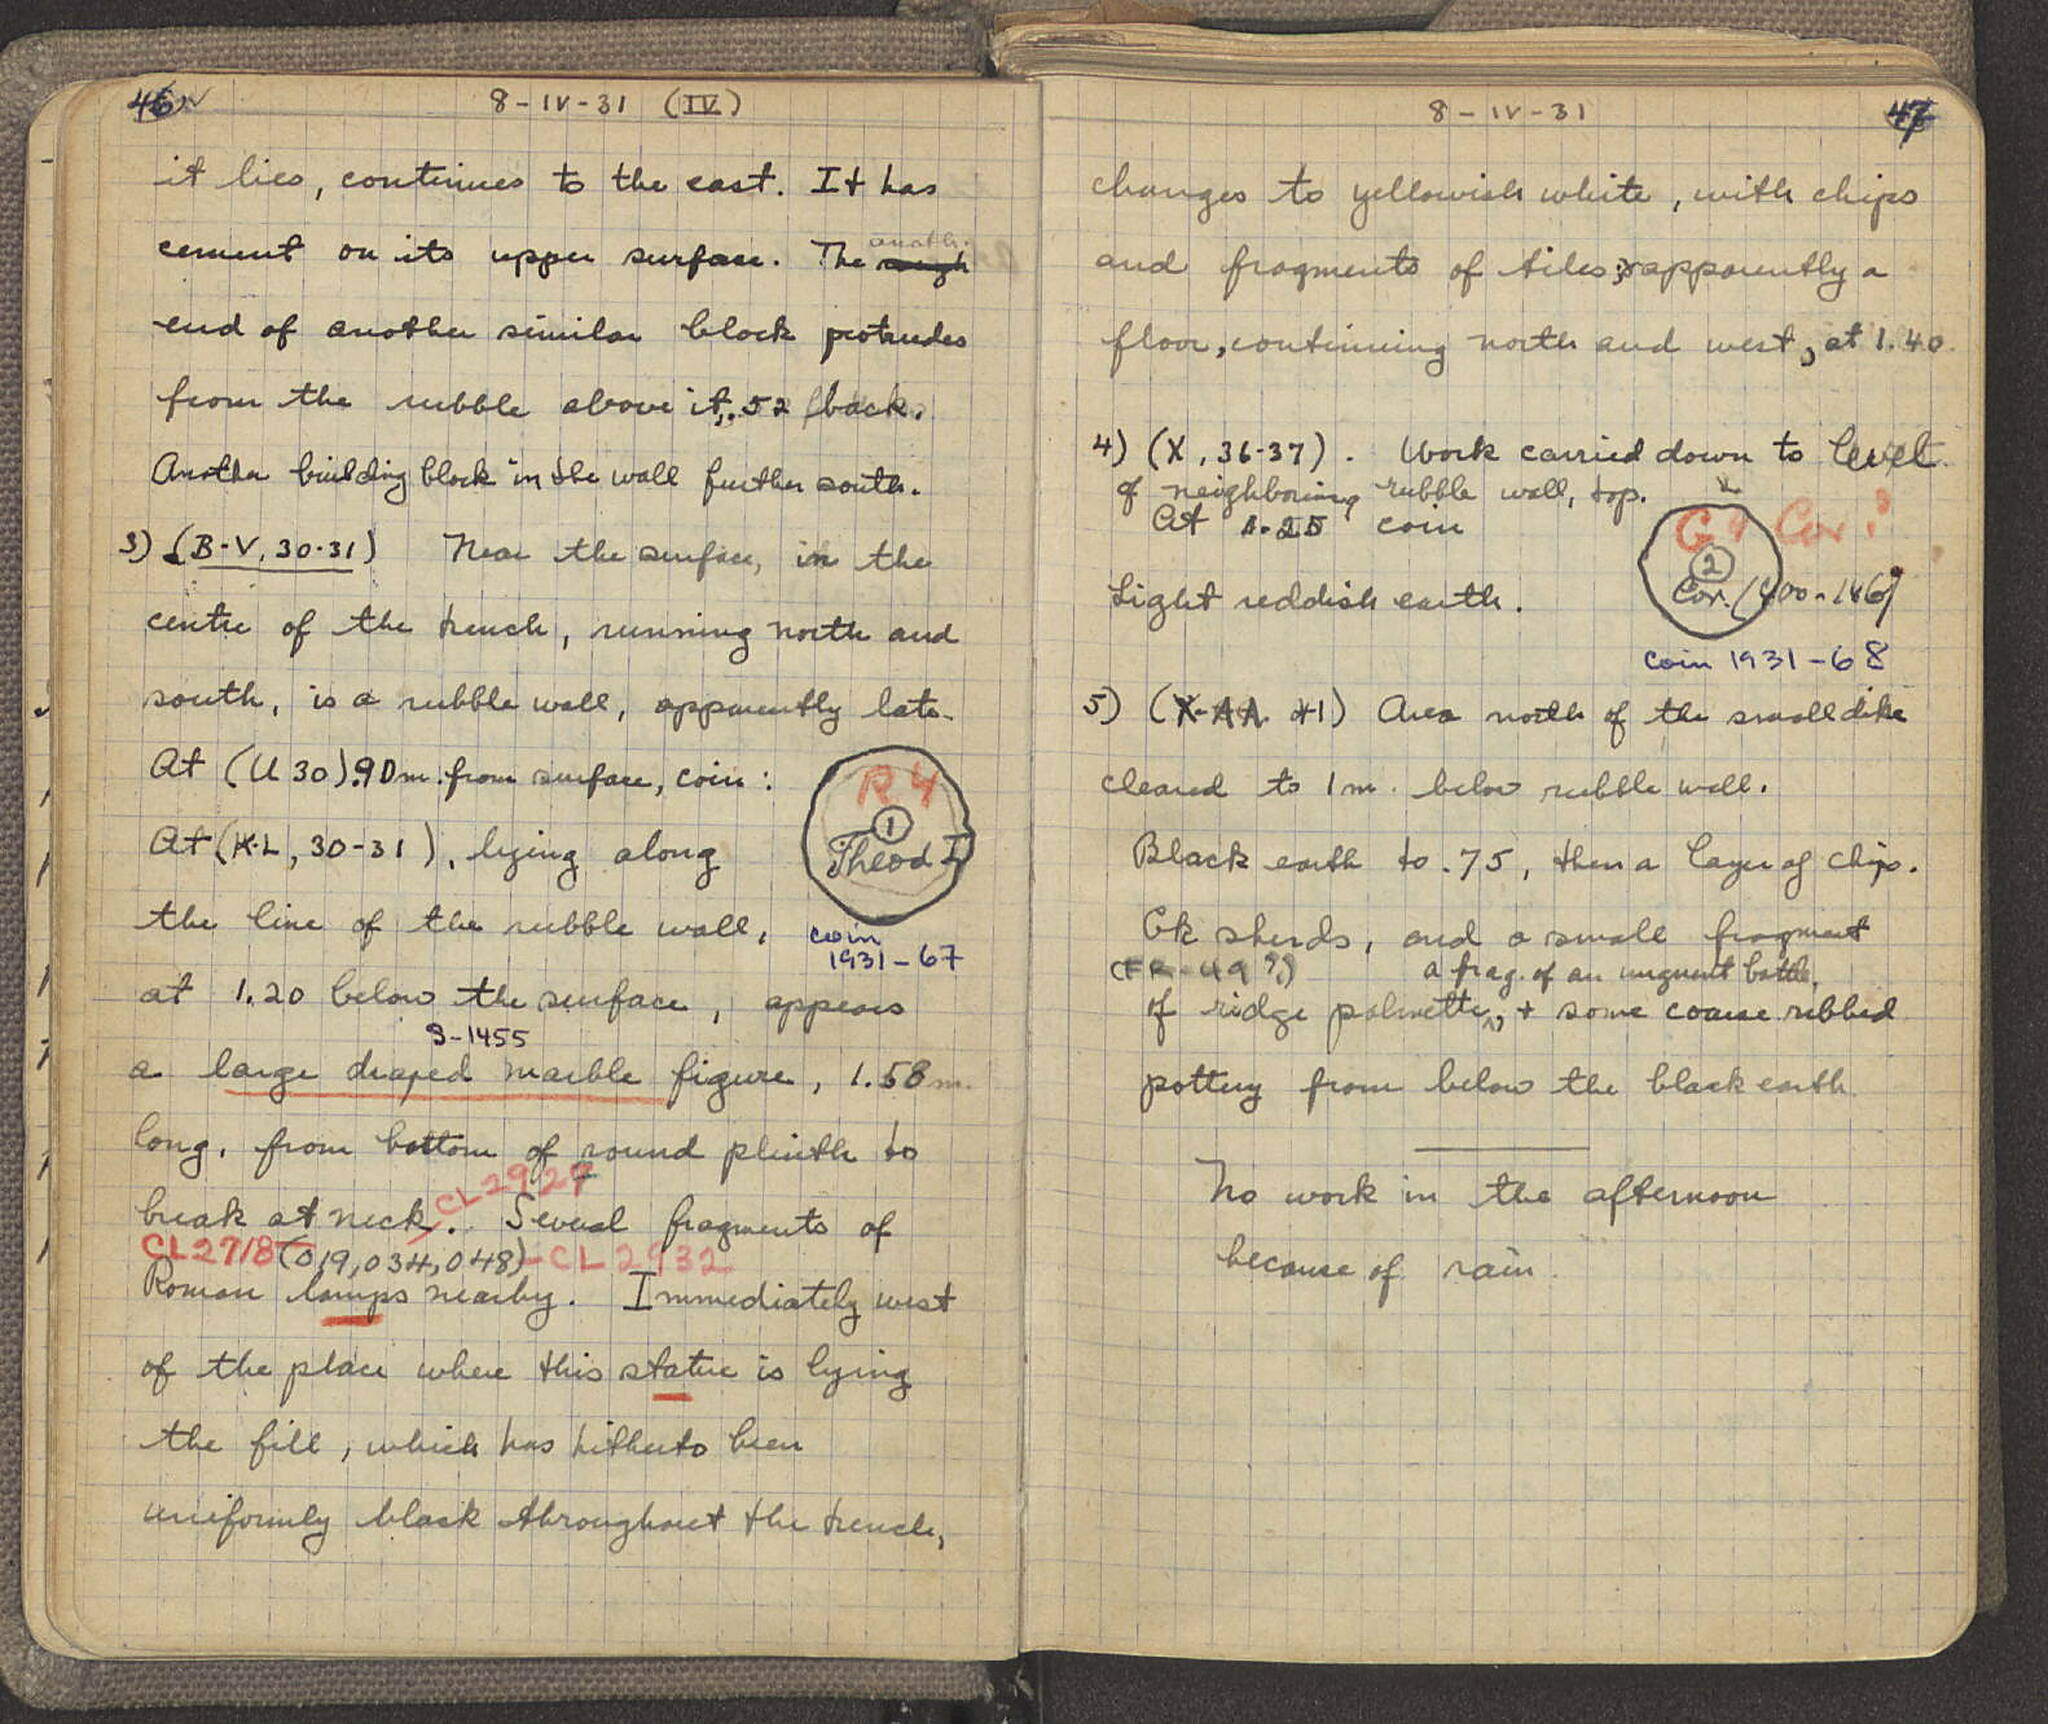 46
8-IV-31 (IV)
it lies, continues to the east. It has
cement on its upper surface. The rough
end of another similar block protrudes
from the rubble above it, .52 back.
Another building block in the wall further south.
3) (B-V, 30-31) Near the surface, in the
centre of the trench, running north and
south, is a rubble wall, apparently late.
At (U 30) .90 m. from surface, coin:
R 4
1
Theod I
coin
1931-67
At (K-L, 30-31), lying along
the line of the rubble wall,
at 1.20 below the surface, appears
S-1455
a large draped marble figure, 1.58 m.
long, from bottom of round plinth to
CL 2927
break at neck. Several fragments of
CL 2718 (019, 034, 048) - CL 2932
Roman lamps nearby. Immediately west
of the place where this statue is lying
the fill, which has hitherto been
uniformly black throughout the trench,
8-IV-31
47
changes to yellowish white, with chips
and fragments of tiles; apparently a
floor, continuing north and west, at 1.40.
4) (X, 36-37). Work carried down to level
of neighboring rubble wall, top.
At 1.25 coin
G 4 Cor?
2
Cor. (400-146)
coin 1931-68
Light reddish earth.
5) (X-AA 41) Area north of the small dike
cleared to 1 m. below rubble wall.
Black earth to .75, then a layer of chips.
Gk sherds, and a small fragment
(FR-49?) a frag. of an unguent bottle,
of ridge palmette, + some coarse ribbed
pottery from below the black earth
No work in the afternoon
because of rain.